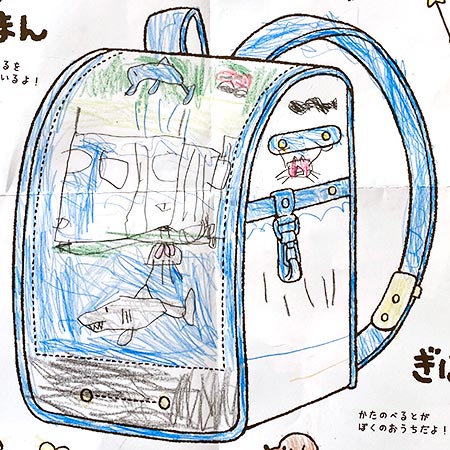 まん
るを
いるよ！
ぎ
かたのべるとが
ぼくのおうちだよ！